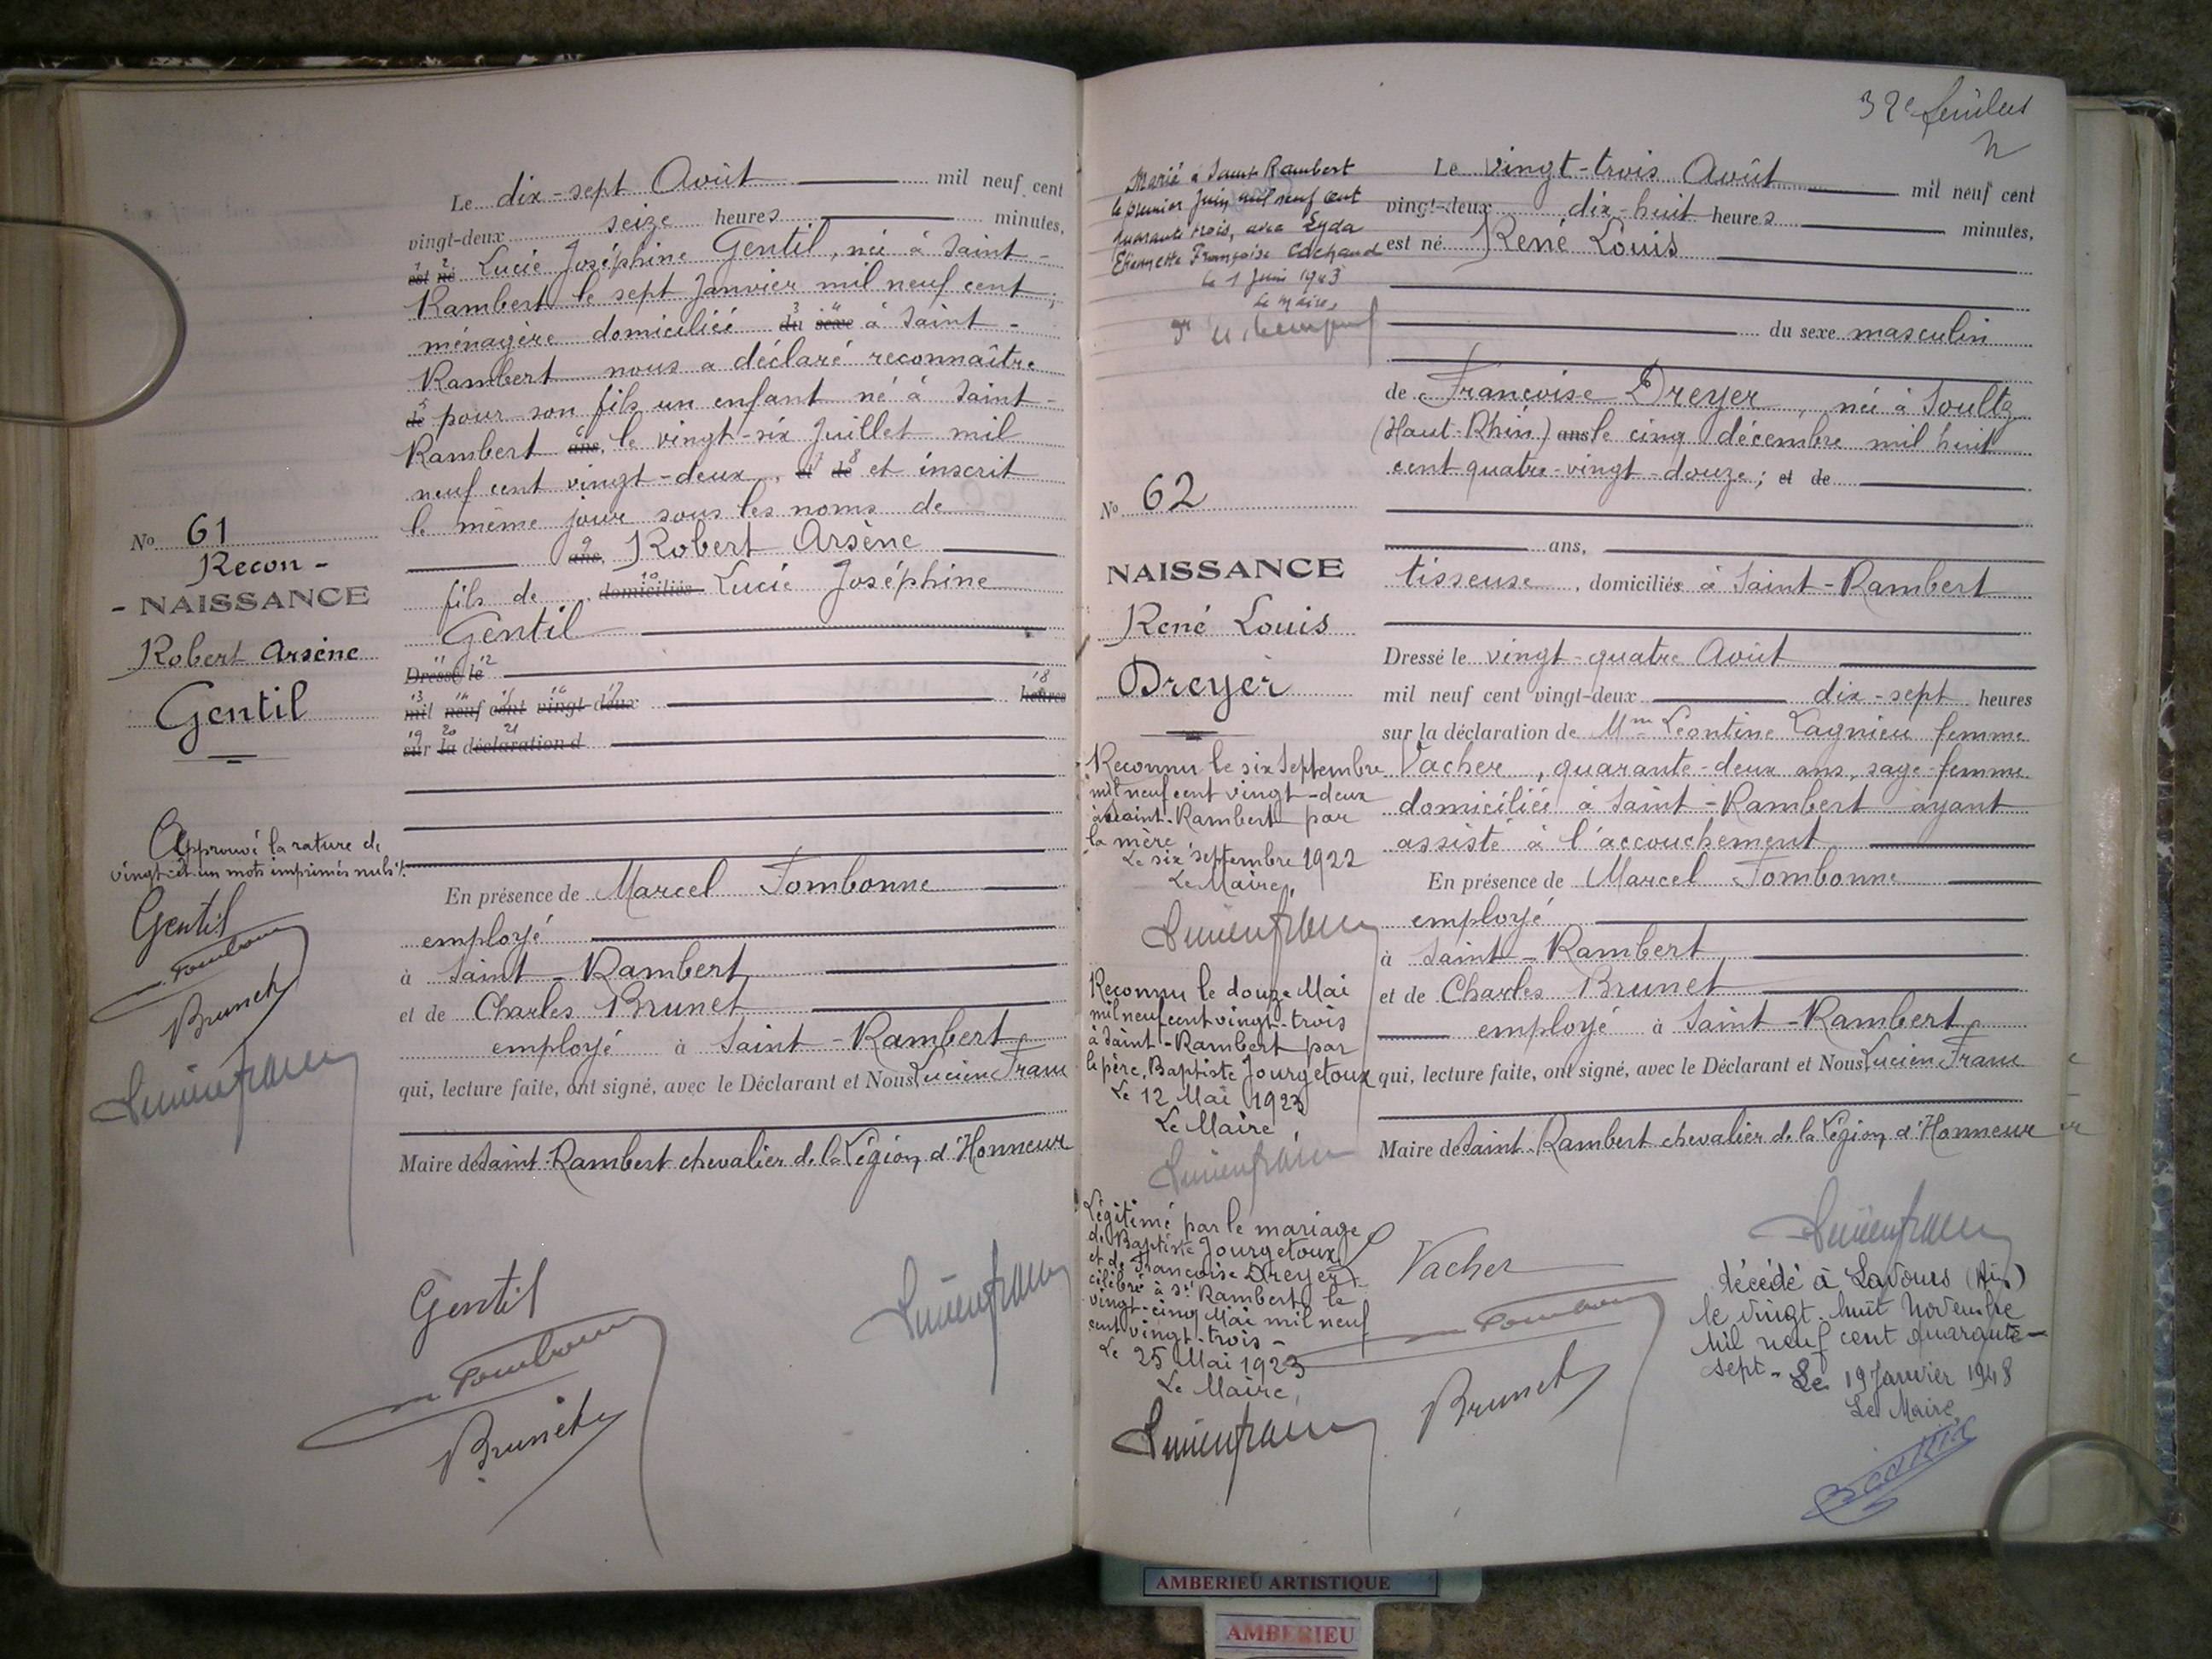 Le dix-sept Août mil neuf cent
vingt-deux seize heures minutes,
1 2
est né Lucie Joséphine Gentil, née à Saint-
Rambert le sept Janvier mil neuf cent,
3 4
ménagère domiciliée du sexe à Saint-
Rambert nous a déclaré reconnaître
5
de pour son fils un enfant né à Saint-
6
Rambert ans, le vingt-six Juillet mil
7 8
neuf cent vingt-deux, et de et inscrit
le même jour sous les noms de
9
ans, Robert Arsène
10
fils de domiciliés Lucie Joséphine
Gentil
11 12
Dressé le
13 14 15 16 17 18
mil neuf cent vingt-deux heures
19 20 21
sur la déclaration d
En présence de Marcel Tombonne
employé
à Saint-Rambert
et de Charles Brunet
employé à Saint-Rambert
qui, lecture faite, ont signé, avec le Déclarant et Nous Lucien Franc
Maire de Saint-Rambert chevalier de la Légion d'Honneur
Gentil
Tombonne
Brunet
Lucien Franc
No 61
Recon-
-NAISSANCE
Robert Arsène
Gentil
Approuvé la rature de
vingt-et-un mots imprimés nuls
Gentil
Tombonne
Brunet
Lucien Franc
32e feuillet
Marié à Saint Rambert
le premier Juin mil neuf cent
quarante trois, avec Lyda
Etiennette Françoise Cochand
le 1 Juin 1943
Le Maire,
Le vingt-trois Août mil neuf cent
vingt-deux dix-huit heures minutes,
est né René Louis
du sexe masculin
de Françoise Dreyer, née à Soultz
(Haut-Rhin) ans le cinq décembre mil huit
cent quatre-vingt-douze; et de
ans,
tisseuse, domiciliés à Saint-Rambert
Dressé le vingt-quatre Août
mil neuf cent vingt-deux dix-sept heures
sur la déclaration de Mme Léontine Lagnieu femme
Vacher, quarante-deux ans, sage-femme
domiciliée à Saint-Rambert ayant
assisté à l'accouchement
En présence de Marcel Tombonne
employé
à Saint-Rambert
et de Charles Brunet
employé à Saint-Rambert
qui, lecture faite, ont signé, avec le Déclarant et Nous Lucien Franc
Maire de Saint-Rambert chevalier de la Légion d'Honneur
Lucien Franc
Vacher
Tombonne
Brunet
No 62
NAISSANCE
René Louis
Dreyer
Reconnu le six Septembre
mil neuf cent vingt-deux
à Saint-Rambert par
la mère
Le six septembre 1922
Le Maire,
Lucien Franc
Reconnu le douze Mai
mil neuf cent vingt-trois
à Saint-Rambert par
le père, Baptiste Jourgetoux
Le 12 Mai 1923
Le Maire
Lucien Franc
Légitimé par le mariage
de Baptiste Jourgetoux
et de Françoise Dreyer
célébré à St Rambert le
vingt-cinq Mai mil neuf
cent vingt-trois -
Le 25 Mai 1923
Le Maire,
Lucien Franc
décédé à Lavours (Ain)
le vingt-huit Novembre
mil neuf cent quarante-
sept - Le 19 Janvier 1948
Le Maire,
AMBERIEU ARTISTIQUE
AMBERIEU